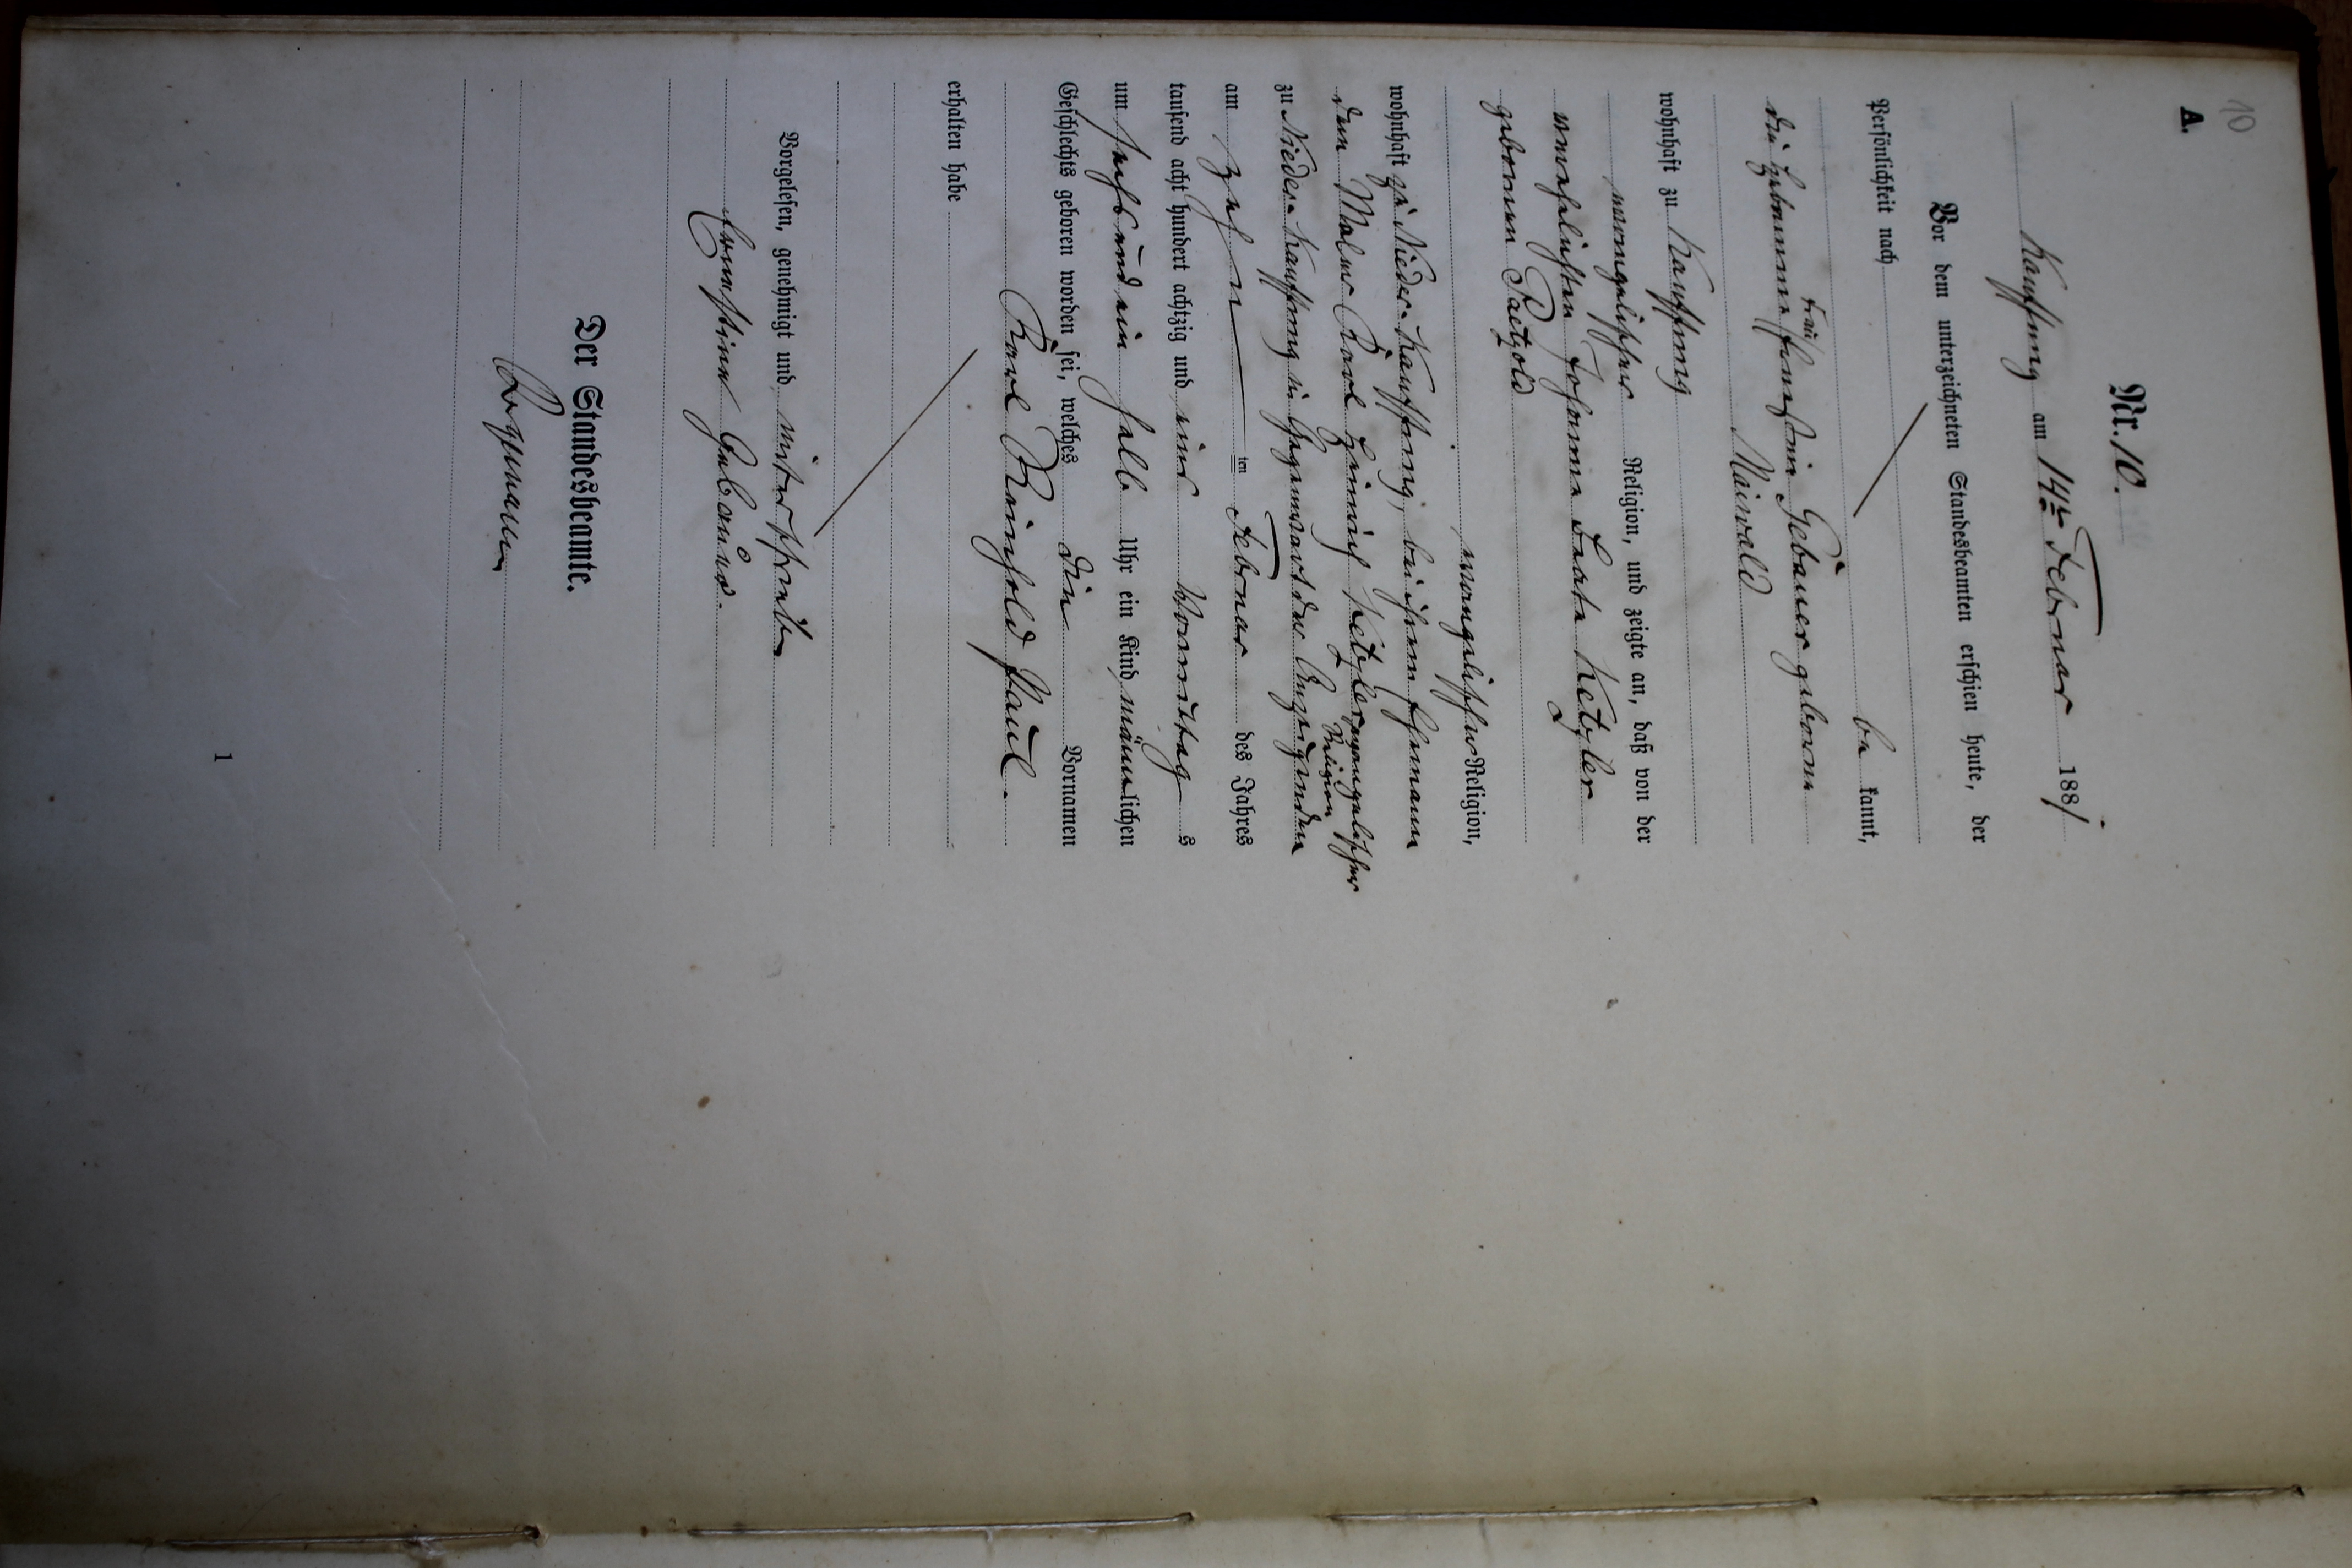 10
A.
Nr. 10.
Kauffung am 14ten Februar 1881.
Vor dem unterzeichneten Standesbeamten erschien heute, der
Persönlichkeit nach be kannt,
die Hebamme Frau Ernestine Gebauer geborne
Maiwald
wohnhaft zu Kauffung
evangelischer Religion, und zeigte an, daß von der
verehelichten Johanne Beate Ketzler
gebornen Paetzold
evangelischer Religion,
wohnhaft zu Nieder-Kauffung, bei ihrem Ehemann
dem Maler Karl Heinrich Ketzler, evangelischer Religion
zu Nieder-Kauffung in Gegenwart der Anzeigenden
am zehn ten Februar des Jahres
tausend acht hundert achtzig und eins Vormittag s
um sechs und ein halb Uhr ein Kind männlichen
Geschlechts geboren worden sei, welches die Vornamen
Karl Reinhold Paul.
erhalten habe
Vorgelesen, genehmigt und unterschrieben
Ernestine Gebauer.
Der Standesbeamte.
1